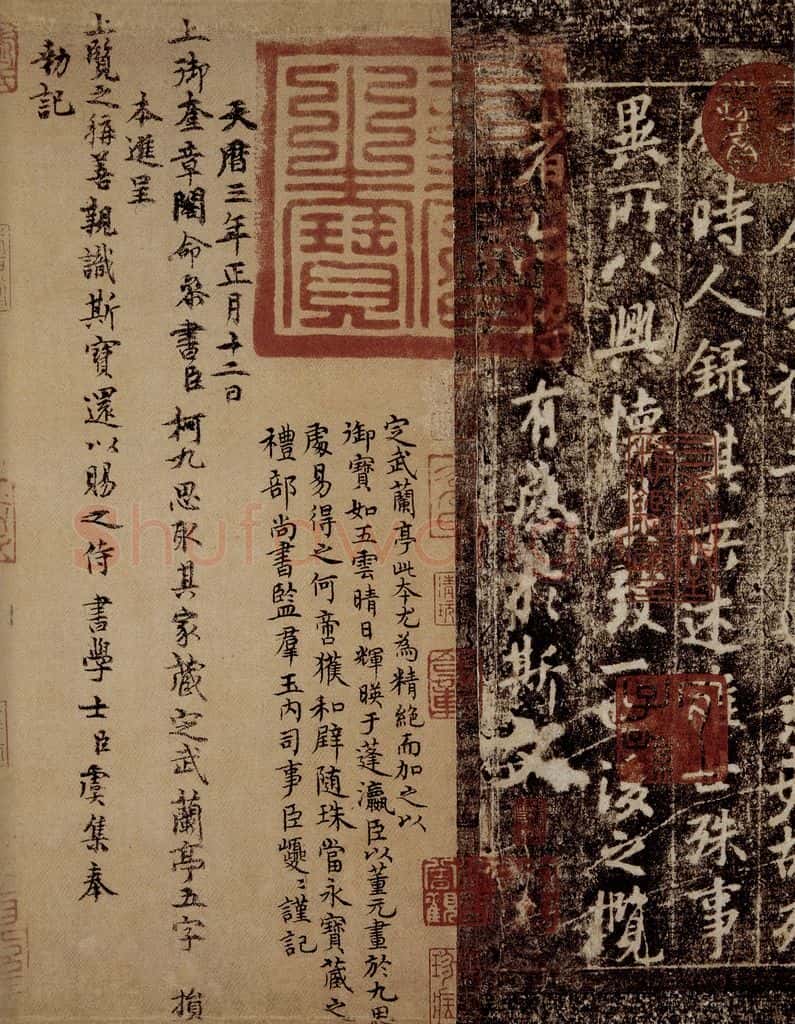 時人録其所述雖世殊事
異所以興懷其致一也後之攬
者亦將有感於斯文
定武蘭亭此本尤為精絕而加之以
御寶如五雲晴日輝暎于蓬瀛臣以董元畫於九思
處易得之何啻獲和璧隨珠當永寶藏之
禮部尚書監羣玉內司事臣巙〻謹記
天曆之寶
天曆三年正月十二日
上御奎章閣命叅書臣柯九思取其家藏定武蘭亭五字損
本進呈
上覽之稱善親識斯寶還以賜之侍書學士臣虞集奉
勑記